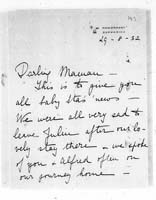 29-8-32
Darling Maman —
This is to give you
all baby Star news —
We were all very sad to
leave after our lo-
vely stay there — we spoke
of you & Alfred often on
our journey home —